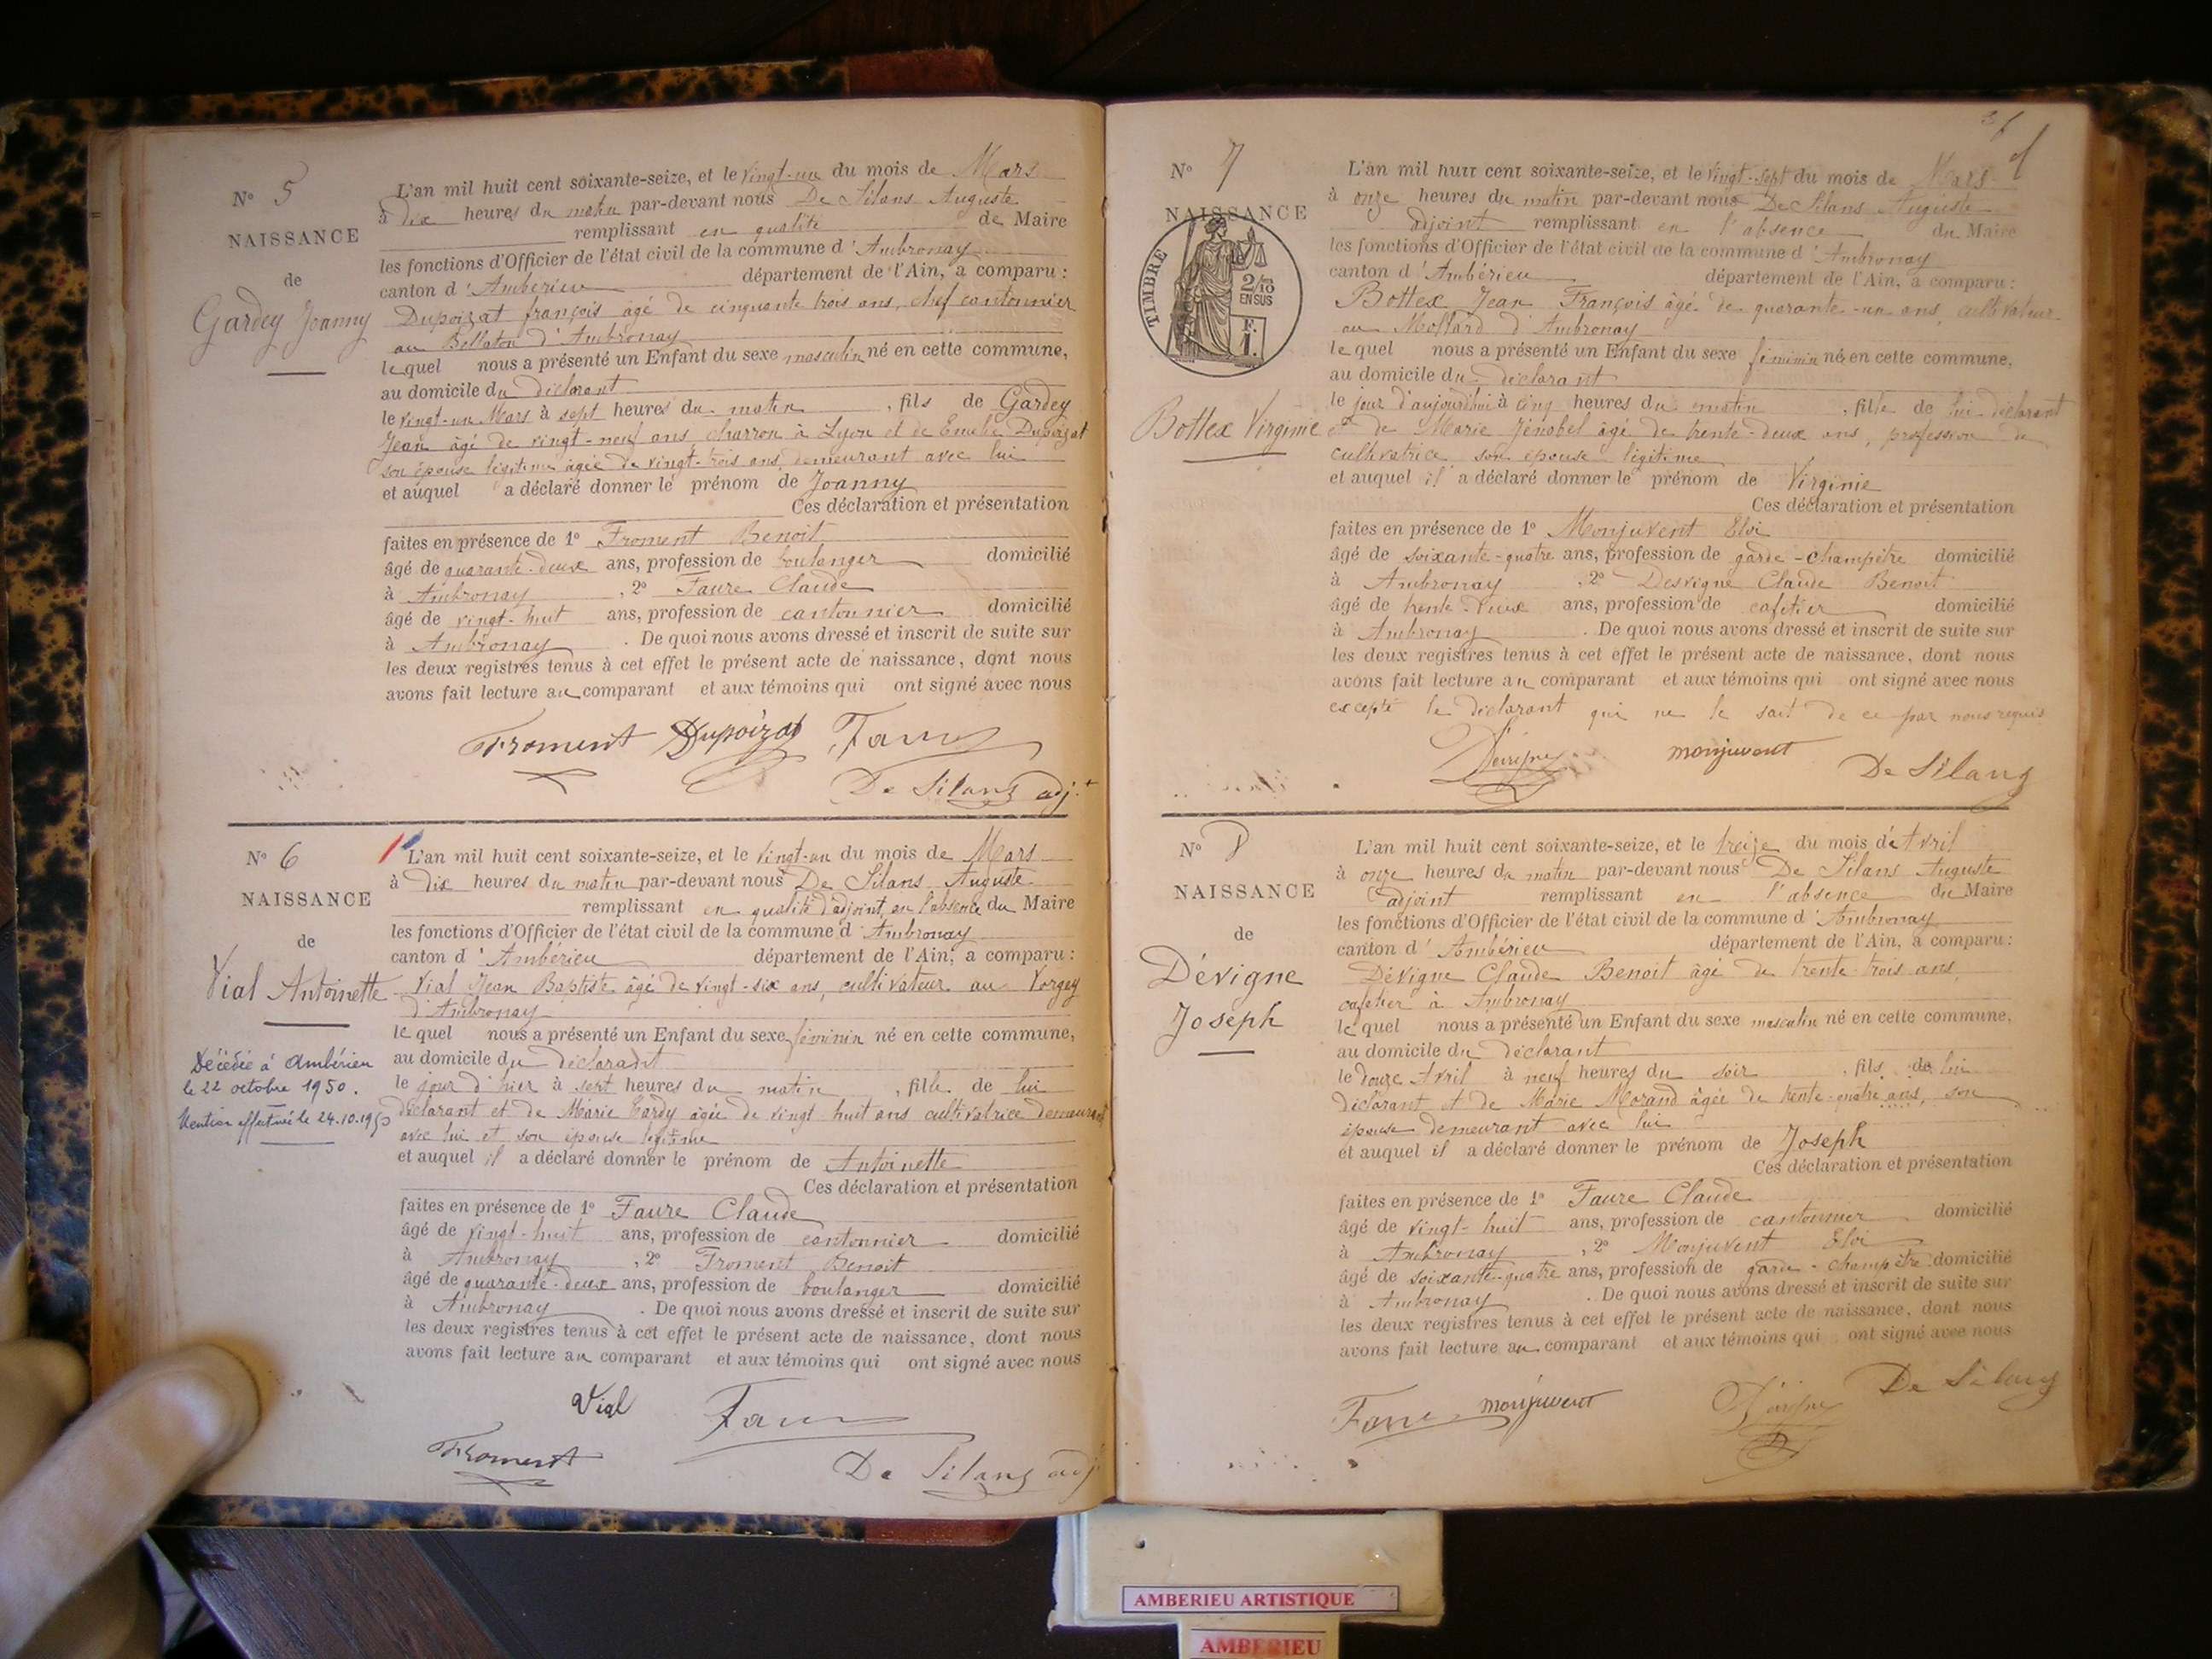 N° 5
NAISSANCE
de
Gardey Joanny
L'an mil huit cent soixante-seize, et le vingt-un du mois de Mars
à dix heures du matin par-devant nous De Silans Auguste
remplissant en qualité de Maire
les fonctions d'Officier de l'état civil de la commune d'Ambronay
canton d'Ambérieu département de l'Ain, a comparu :
Dupoizat françois âgé de cinquante trois ans, chef cantonnier
au Bellaton d'Ambronay
lequel nous a présenté un Enfant du sexe masculin né en cette commune,
au domicile du déclarant
le vingt-un Mars à sept heures du matin, fils de Gardey
Jean âgé de vingt-neuf ans charron à Lyon et de Emélie Dupoizat
son épouse légitime âgée de vingt-trois ans, demeurant avec lui
et auquel a déclaré donner le prénom de Joanny
Ces déclaration et présentation
faites en présence de 1° Froment Benoit
âgé de quarante-deux ans, profession de boulanger domicilié
à Ambronay, 2° Faure Claude
âgé de vingt-huit ans, profession de cantonnier domicilié
à Ambronay. De quoi nous avons dressé et inscrit de suite sur
les deux registres tenus à cet effet le présent acte de naissance, dont nous
avons fait lecture au comparant et aux témoins qui ont signé avec nous
Froment Dupoizat Faure
De Silans adj.t
N° 6
NAISSANCE
de
Vial Antoinette
Décédée à Ambérieu
le 22 octobre 1950.
Mention effectuée le 24.10.1950
L'an mil huit cent soixante-seize, et le vingt-un du mois de Mars
à dix heures du matin par-devant nous De Silans Auguste
remplissant en qualité d'adjoint, en l'absence du Maire
les fonctions d'Officier de l'état civil de la commune d'Ambronay
canton d'Ambérieu département de l'Ain, a comparu :
Vial Jean Baptiste âgé de vingt-six ans, cultivateur au Vorgey
d'Ambronay
lequel nous a présenté un Enfant du sexe féminin né en cette commune,
au domicile du déclarant
le jour d'hier à sept heures du matin, fille de lui
déclarant et de Marie Tardy âgée de vingt huit ans cultivatrice demeurant
avec lui et son épouse légitime
et auquel il a déclaré donner le prénom de Antoinette
Ces déclaration et présentation
faites en présence de 1° Faure Claude
âgé de vingt-huit ans, profession de cantonnier domicilié
à Ambronay, 2° Froment Benoit
âgé de quarante-deux ans, profession de boulanger domicilié
à Ambronay. De quoi nous avons dressé et inscrit de suite sur
les deux registres tenus à cet effet le présent acte de naissance, dont nous
avons fait lecture au comparant et aux témoins qui ont signé avec nous
Vial Faure
Froment
De Silans adj
N° 7
NAISSANCE
TIMBRE
2/10
EN SUS
F.
1.
Bottex Virginie
L'an mil huit cent soixante-seize, et le vingt-sept du mois de Mars
à onze heures du matin par-devant nous De Silans Auguste
adjoint remplissant en l'absence du Maire
les fonctions d'Officier de l'état civil de la commune d'Ambronay
canton d'Ambérieu département de l'Ain, a comparu :
Bottex Jean François âgé de quarante-un ans, cultivateur
au Mollard d'Ambronay
lequel nous a présenté un Enfant du sexe féminin né en cette commune,
au domicile du déclarant
le jour d'aujourd'hui à cinq heures du matin, fille de lui déclarant
et de Marie Jénobel âgé de trente-deux ans, profession de
cultivatrice son épouse légitime
et auquel il a déclaré donner le prénom de Virginie
Ces déclaration et présentation
faites en présence de 1° Monjuvent Eloi
âgé de soixante-quatre ans, profession de garde-champêtre domicilié
à Ambronay, 2° Desvigne Claude Benoit
âgé de trente-deux ans, profession de cafetier domicilié
à Ambronay. De quoi nous avons dressé et inscrit de suite sur
les deux registres tenus à cet effet le présent acte de naissance, dont nous
avons fait lecture au comparant et aux témoins qui ont signé avec nous
excepté le déclarant qui ne le sait de ce par nous requis
Dévigne monjuvent De Silans
N° 8
NAISSANCE
de
Dévigne
Joseph
L'an mil huit cent soixante-seize, et le treize du mois d'Avril
à onze heures du matin par-devant nous De Silans Auguste
adjoint remplissant en l'absence du Maire
les fonctions d'Officier de l'état civil de la commune d'Ambronay
canton d'Ambérieu département de l'Ain, a comparu :
Dévigne Claude Benoit âgé de trente-trois ans,
cafetier à Ambronay
lequel nous a présenté un Enfant du sexe masculin né en cette commune,
au domicile du déclarant
le douze Avril à neuf heures du soir, fils de lui
déclarant et de Marie Morand âgée de trente-quatre ans, son
épouse demeurant avec lui
et auquel il a déclaré donner le prénom de Joseph
Ces déclaration et présentation
faites en présence de 1° Faure Claude
âgé de vingt-huit ans, profession de cantonnier domicilié
à Ambronay, 2° Monjuvent Eloi
âgé de soixante-quatre ans, profession de garde-champêtre domicilié
à Ambronay. De quoi nous avons dressé et inscrit de suite sur
les deux registres tenus à cet effet le présent acte de naissance, dont nous
avons fait lecture au comparant et aux témoins qui ont signé avec nous
Faure monjuvent Dévigne De Silans
AMBERIEU ARTISTIQUE
AMBERIEU